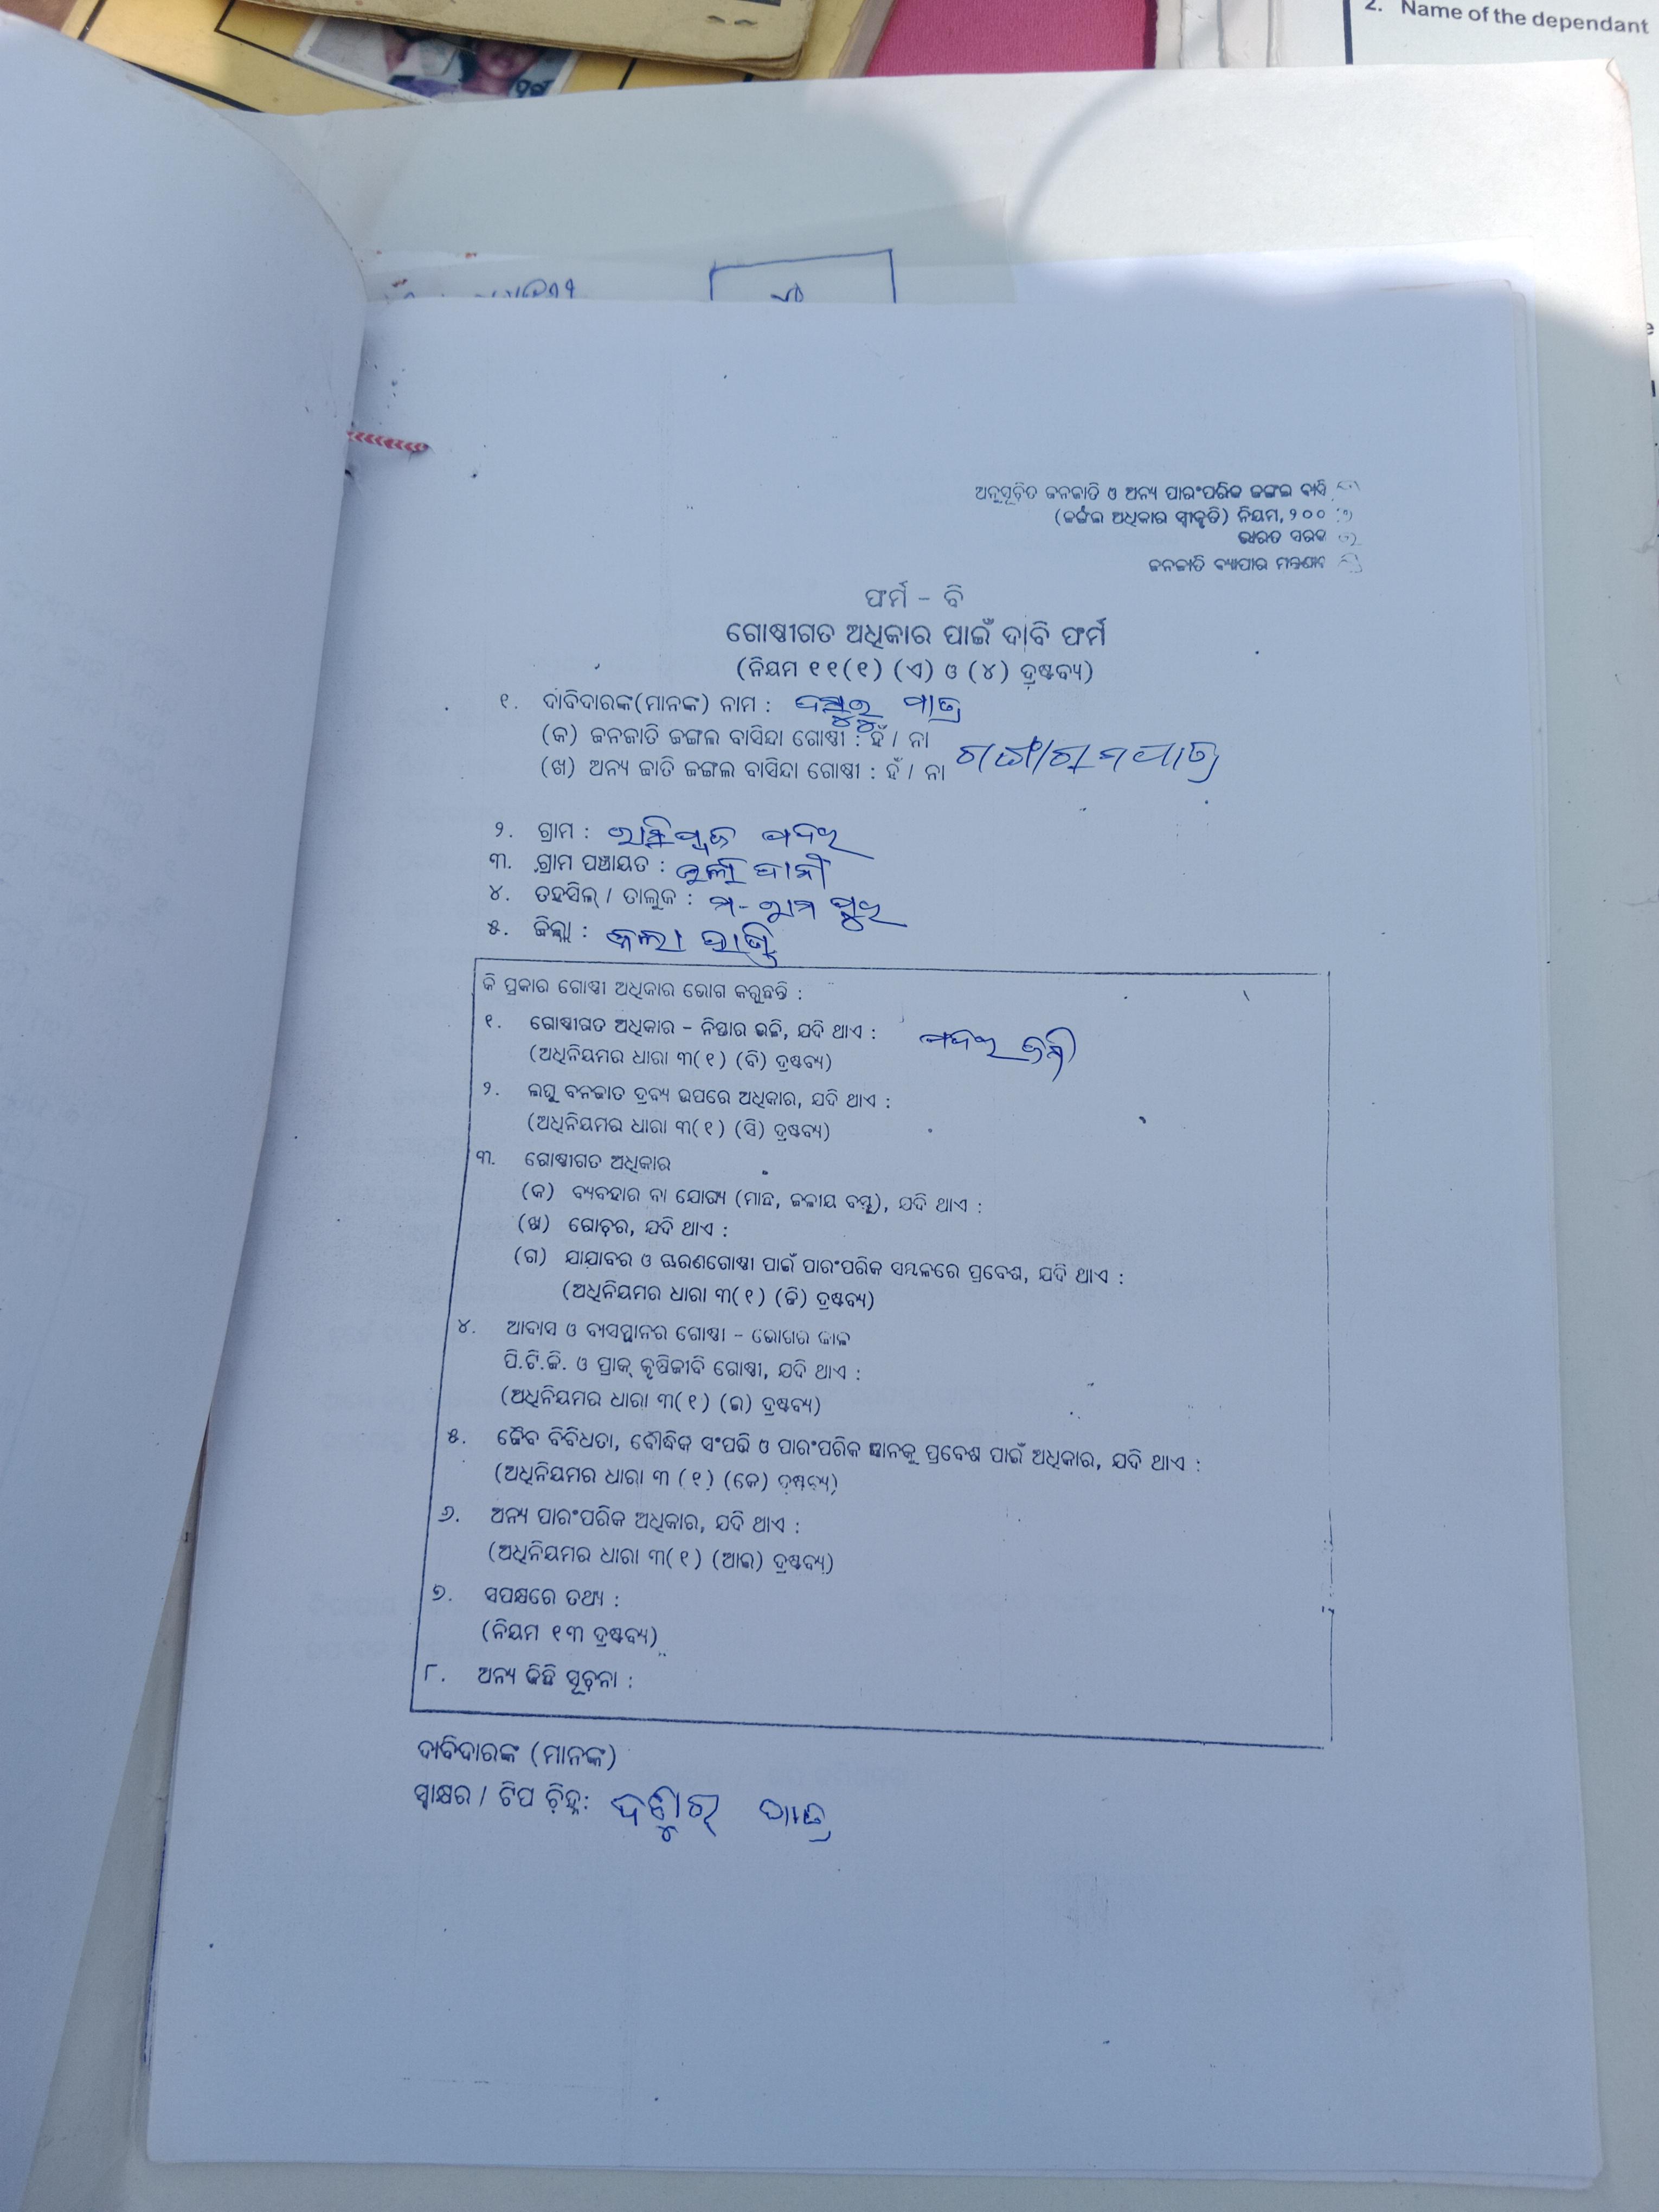 2. Name of the dependant
ଅନୁସୂଚିତ ଜନଜାତି ଓ ଅନ୍ୟ ପାରଂପରିକ ଜଙ୍ଗଲ ବାସି
(ଜଙ୍ଗଲ ଅଧିକାର ସ୍ୱୀକୃତି) ନିୟମ, ୨୦୦
ଭାରତ ସରକ
ଜନଜାତି ବ୍ୟାପାର ମନ୍ତ୍ରଣା
ଫର୍ମ - ବି
ଗୋଷ୍ଠୀଗତ ଅଧିକାର ପାଇଁ ଦାବି ଫର୍ମ
(ନିୟମ ୧୧(୧) (ଏ) ଓ (୪) ଦ୍ରଷ୍ଟବ୍ୟ)
୧. ଦାବିଦାରଙ୍କ(ମାନଙ୍କ) ନାମ : ପାତ୍ର
(କ) ଜନଜାତି ଜଙ୍ଗଲ ବାସିନ୍ଦା ଗୋଷ୍ଠୀ : ହଁ / ନା
(ଖ) ଅନ୍ୟ ଜାତି ଜଙ୍ଗଲ ବାସିନ୍ଦା ଗୋଷ୍ଠୀ : ହଁ / ନା
୨. ଗ୍ରାମ :
୩. ଗ୍ରାମ ପଞ୍ଚାୟତ :
୪. ତହସିଲ୍ / ତାଲୁକ : ମ-ରାମପୁର
୫. ଜିଲ୍ଲା : କଳାହାଣ୍ଡି
କି ପ୍ରକାର ଗୋଷ୍ଠୀ ଅଧିକାର ଭୋଗ କରୁଛନ୍ତି :
୧. ଗୋଷ୍ଠୀଗତ ଅଧିକାର - ନିସ୍ତାର ଭଳି, ଯଦି ଥାଏ :
(ଅଧିନିୟମର ଧାରା ୩(୧) (ବି) ଦ୍ରଷ୍ଟବ୍ୟ)
୨. ଲଘୁ ବନଜାତ ଦ୍ରବ୍ୟ ଉପରେ ଅଧିକାର, ଯଦି ଥାଏ :
(ଅଧିନିୟମର ଧାରା ୩(୧) (ସି) ଦ୍ରଷ୍ଟବ୍ୟ)
୩. ଗୋଷ୍ଠୀଗତ ଅଧିକାର
(କ) ବ୍ୟବହାର ବା ଯୋଗ୍ୟ (ମାଛ, ଜଳୀୟ ବସ୍ତୁ), ଯଦି ଥାଏ :
(ଖ) ଗୋଚର, ଯଦି ଥାଏ :
(ଗ) ଯାଯାବର ଓ ଚାରଣଗୋଷ୍ଠୀ ପାଇଁ ପାରଂପରିକ ସମ୍ବଳରେ ପ୍ରବେଶ, ଯଦି ଥାଏ :
(ଅଧିନିୟମର ଧାରା ୩(୧) (ଡି) ଦ୍ରଷ୍ଟବ୍ୟ)
୪. ଆବାସ ଓ ବାସସ୍ଥାନର ଗୋଷ୍ଠୀ - ଭୋଗର କାଳ
ପି.ଟି.ଜି. ଓ ପ୍ରାକ୍ କୃଷିଜୀବି ଗୋଷ୍ଠୀ, ଯଦି ଥାଏ :
(ଅଧିନିୟମର ଧାରା ୩(୧) (ଇ) ଦ୍ରଷ୍ଟବ୍ୟ)
୫. ଜୈବ ବିବିଧତା, ବୌଦ୍ଧିକ ସଂପତ୍ତି ଓ ପାରଂପରିକ ଜ୍ଞାନକୁ ପ୍ରବେଶ ପାଇଁ ଅଧିକାର, ଯଦି ଥାଏ :
(ଅଧିନିୟମର ଧାରା ୩ (୧) (କେ) ଦ୍ରଷ୍ଟବ୍ୟ)
୬. ଅନ୍ୟ ପାରଂପରିକ ଅଧିକାର, ଯଦି ଥାଏ :
(ଅଧିନିୟମର ଧାରା ୩(୧) (ଆଇ) ଦ୍ରଷ୍ଟବ୍ୟ)
୭. ସପକ୍ଷରେ ତଥ୍ୟ :
(ନିୟମ ୧୩ ଦ୍ରଷ୍ଟବ୍ୟ)
୮. ଅନ୍ୟ କିଛି ସୂଚନା :
ଦାବିଦାରଙ୍କ (ମାନଙ୍କ)
ସ୍ୱାକ୍ଷର / ଟିପ ଚିହ୍ନ : ପାତ୍ର